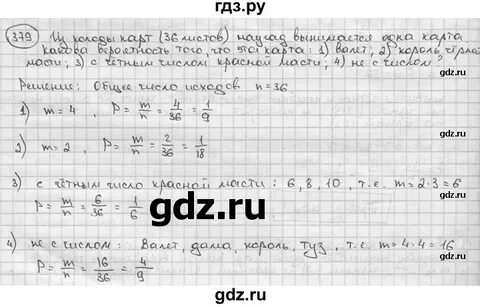 379 Из колоды карт (36 листов) наугад вынимается одна карта.
Какова вероятность того, что эта карта: 1) валет; 2) король чёрной
масти; 3) с чётным числом красной масти; 4) не с числом?
Решение: Общее число исходов n = 36.
1) m = 4, P = m/n = 4/36 = 1/9
2) m = 2, P = m/n = 2/36 = 1/18
3) с чётным число красной масти: 6, 8, 10, т.е. m = 2·3 = 6
P = m/n = 6/36 = 1/6
gdz.ru
4) не с числом: Валет, дама, король, туз, т.е. m = 4·4 = 16
P = m/n = 16/36 = 4/9
gdz.ru
gdz.ru